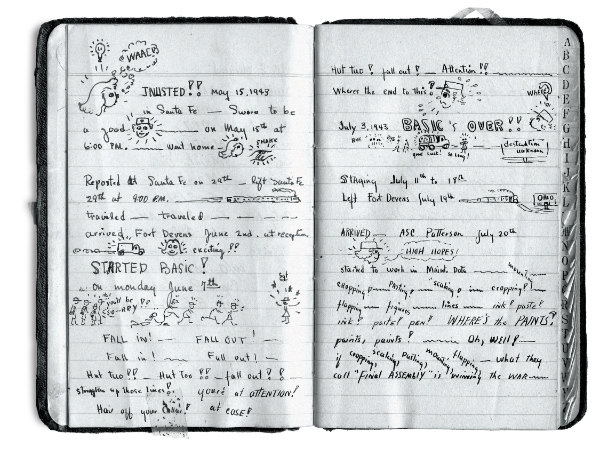 WAACS
INLISTED!! May 15, 1943
in Santa Fe — Sworn to be
a good — on May 15th at
6:00 P.M. — went home
Reported at Santa Fe on 29th — left Santa Fe
29th at 9:00 P.M.
traveled — traveled —
arrived, Fort Devens June 2nd. at reception
exciting!!
STARTED BASIC!
on monday June 7th
FALL IN! — FALL OUT! —
Fall in! — Fall out! —
Hut Two!! — Hut Two!! — fall out!!
straighten up those lines! you're at ATTENTION!
at EASE!
Hut two! fall out! — Attention!!
Wheres the end to this?
July 3, 1943 BASIC's OVER!!
destination unknown
STAGING July 11th to 18th
Left Fort Devens July 19th
OHIO
ARRIVED — ASC Patterson July 20th
HIGH HOPES!
started to work in Maint. Data
mount
cropping — Pasting, scaling, cropping!
flapping — figures — lines — ink! paste!
ink! paste! pen! WHERE'S the PAINTS?
paints, paints! — Oh, WELL! —
if cropping, scaling, pasting, mounting, flapping — what they
call "FINAL ASSEMBLY" is winning the WAR —
A
B
C
D
E
F
G
H
I
J
K
L